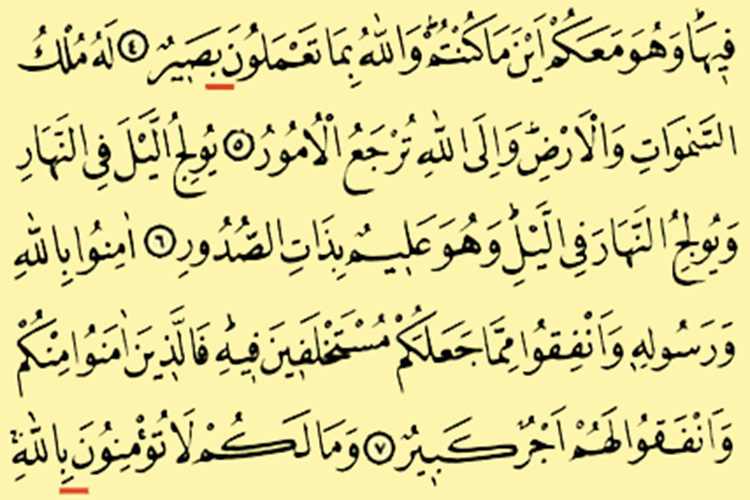 فِيهَاۜ وَهُوَ مَعَكُمْ اَيْنَ مَا كُنْتُمْۜ وَاللّٰهُ بِمَا تَعْمَلُونَ بَصِيرٌ ﴿٤﴾ لَهُ مُلْكُ
السَّمٰوَاتِ وَالْاَرْضِۜ وَاِلَى اللّٰهِ تُرْجَعُ الْاُمُورُ ﴿٥﴾ يُولِجُ الَّيْلَ فِي النَّهَارِ
وَيُولِجُ النَّهَارَ فِي الَّيْلِۜ وَهُوَ عَلِيمٌ بِذَاتِ الصُّدُورِ ﴿٦﴾ اٰمِنُوا بِاللّٰهِ
وَرَسُولِهِ وَاَنْفِقُوا مِمَّا جَعَلَكُمْ مُسْتَخْلَفِينَ فِيهِۜ فَالَّذِينَ اٰمَنُوا مِنْكُمْ
وَاَنْفَقُوا لَهُمْ اَجْرٌ كَبِيرٌ ﴿٧﴾ وَمَا لَكُمْ لَا تُؤْمِنُونَ بِاللّٰهِۚ